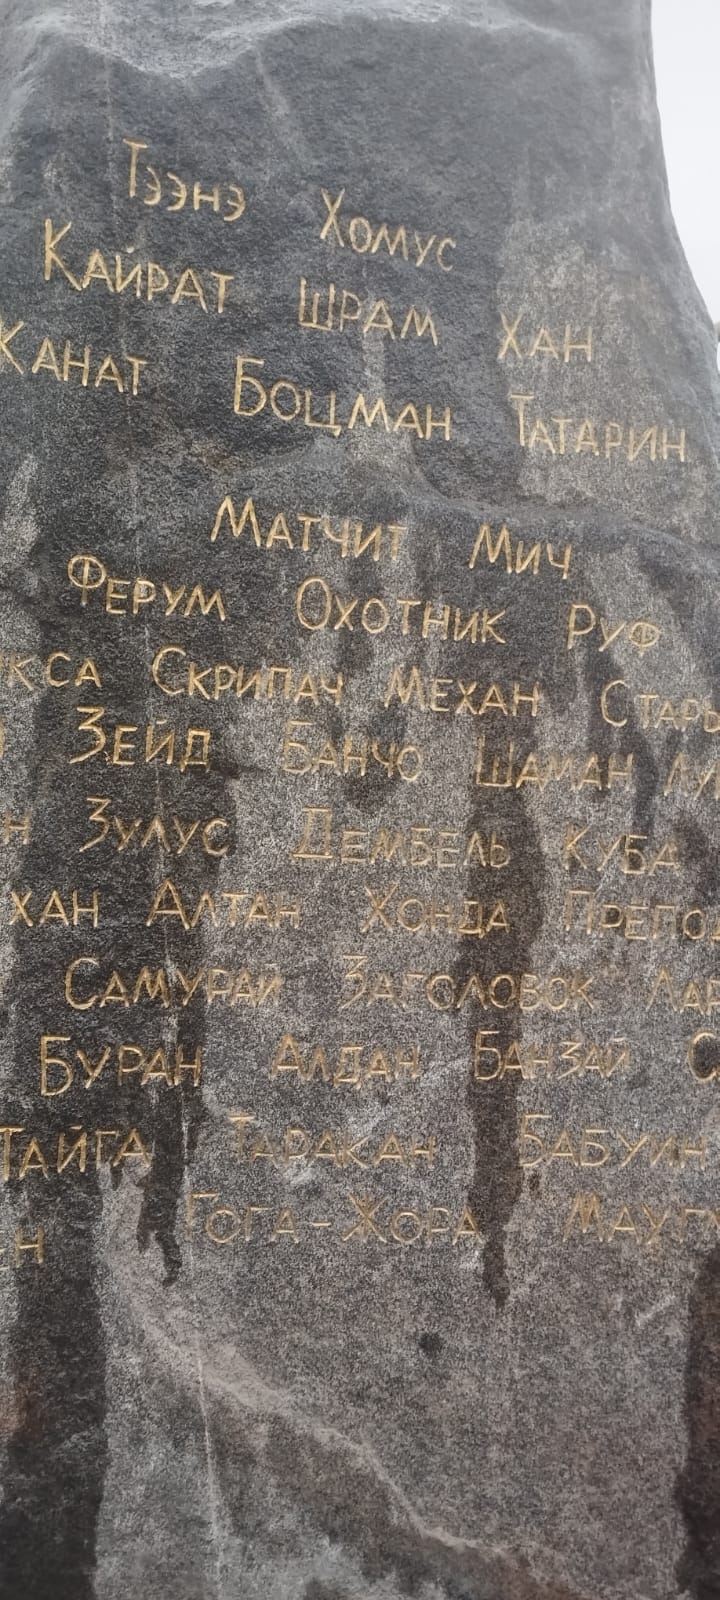 Тээнэ Хомус
Кайрат Шрам Хан
Канат Боцман Татарин
Матчит Мич
Ферум Охотник Руф
Скрипач Механ
Зейд Банчо Шаман
Зулус Дембель Куба
хан Алтан Хонда
Самурай Заголовок
Буран Алдан Банзай
Тайга Таракан Бабуин
Гога-Жора